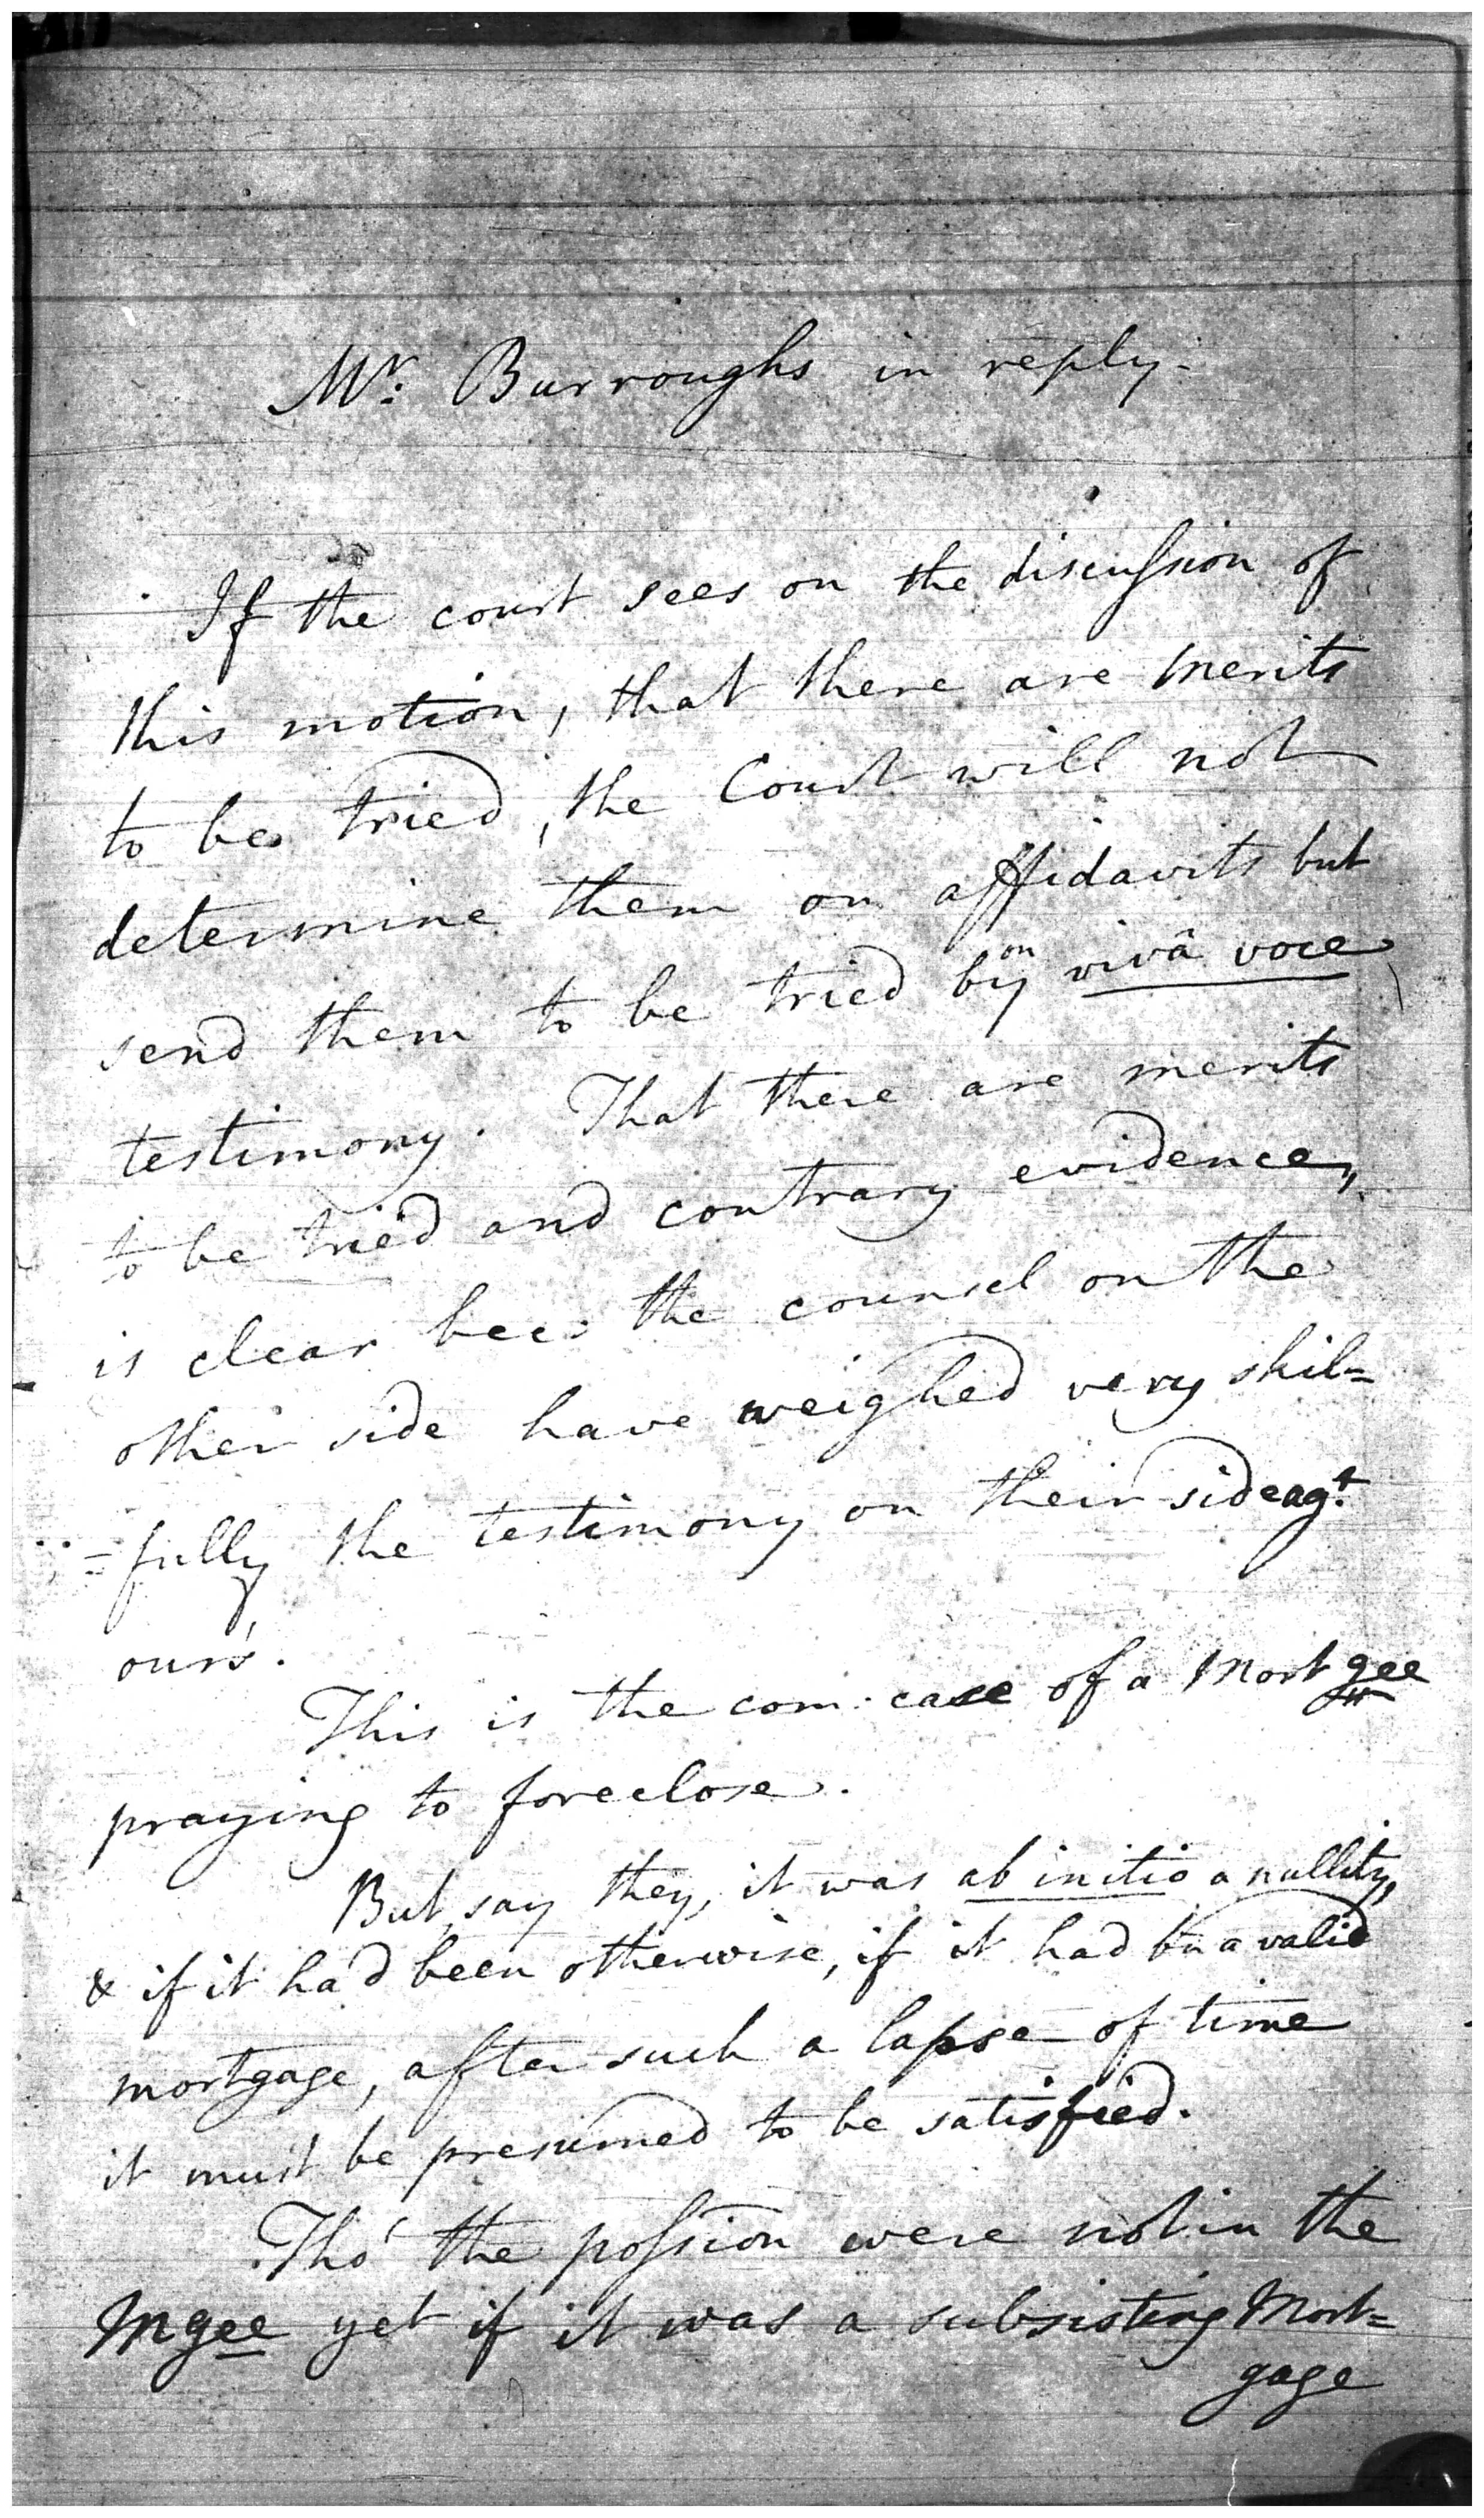 Mr. Burroughs in reply.
If the court sees on the discussion of
this motion, that there are merits
to be tried, the Court will not
determine them on affidavits but
on
send them to be tried by vivâ voce
testimony. That there are merits
to be tried and contrary evidence,
is clear bec: the counsel on the
other side have weighed very skil=
=fully the testimony on their side agt.
ours.
This is the com: case of a Mortgee
praying to foreclose.
But, say they, it was ab initio a nullity,
& if it had been otherwise, if it had bn a valid
mortgage, after such a lapse of time
it must be presumed to be satisfied.
Tho' the possion were not in the
Mgee yet if it was a subsisting Mort=
gage